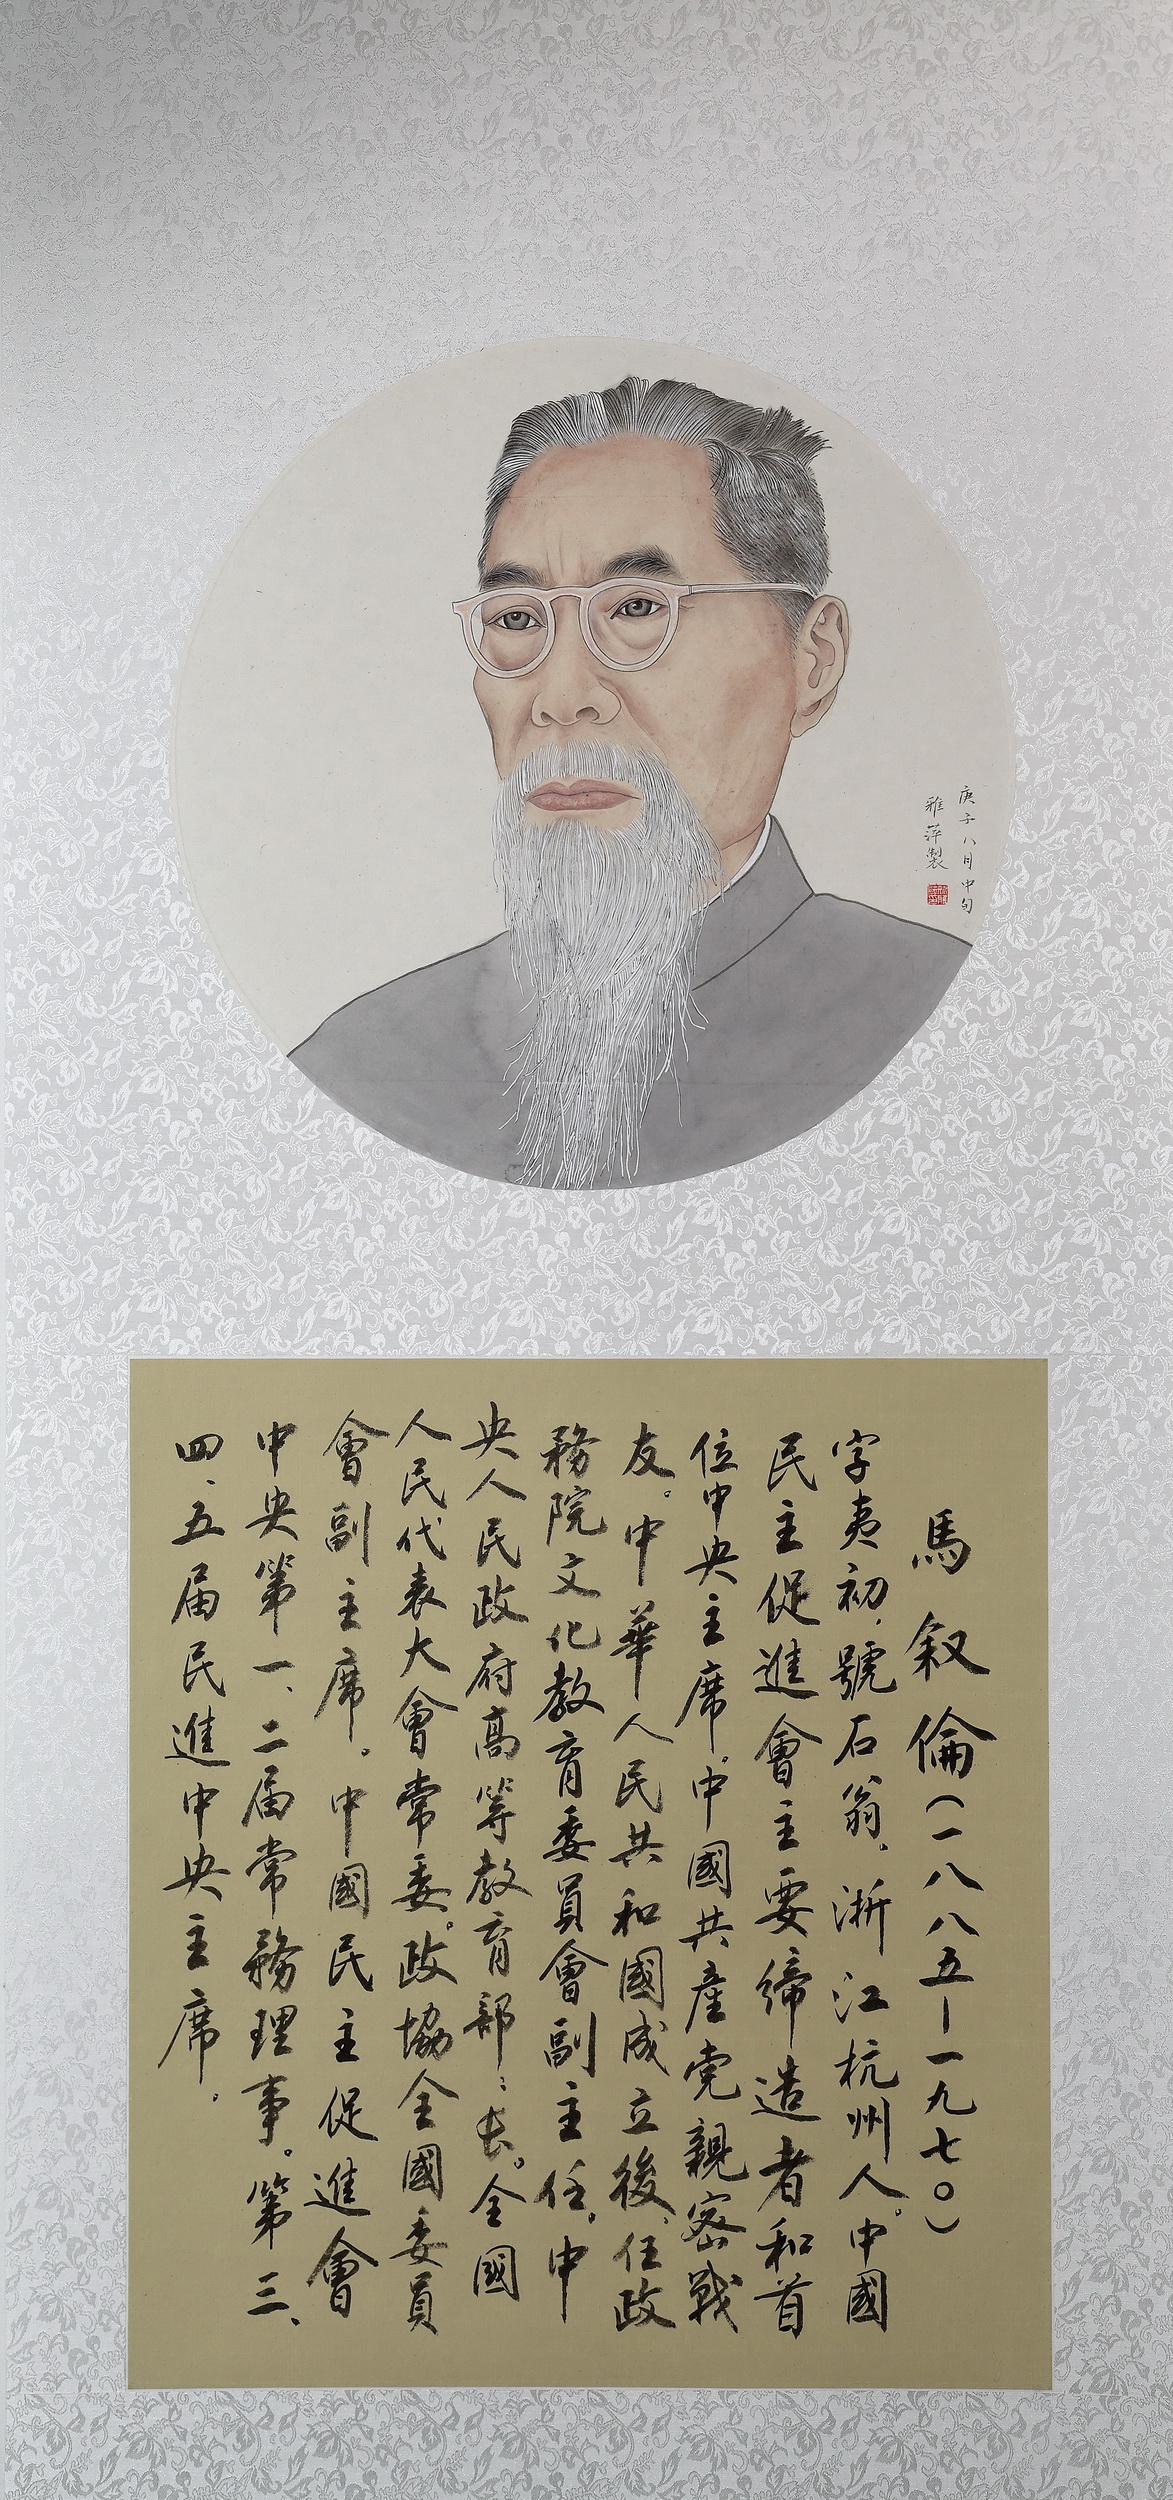 庚子八月中旬
雅萍製
馬叙倫（一八八五—一九七〇）
字夷初，號石翁，浙江杭州人。中國
民主促進會主要締造者和首
位中央主席。中國共產党親密戰
友。中華人民共和國成立後，任政
務院文化教育委員會副主任。中
央人民政府高等教育部：長。全國
人民代表大會常委。政協全國委員
會副主席。中國民主促進會
中央第一、二届常務理事。第三、
四、五届民進中央主席。